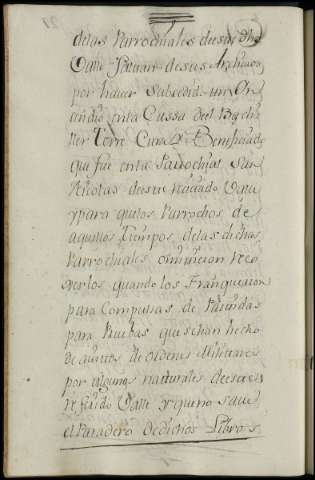 de las Parrochiales de este dho
Valle faltan de sus Archivos
por haver Subcedido un Yn
zendio en la Cassa del Bachi
ller Torre Cura y Beneficiado
que fue en la Parrochial San
Nicolas de este
y para que los Parrochos de
aquellos Tiempos, de las dichas
Parrochiales omitieron reco
gerlos quando los Franquearon
para Compulsas de Partidas
para Pruebas que se han hecho
de avitos de Ordenes Militares
por algunos naturales de este
referido Valle y que no save
el Paradero de dichos Libros.